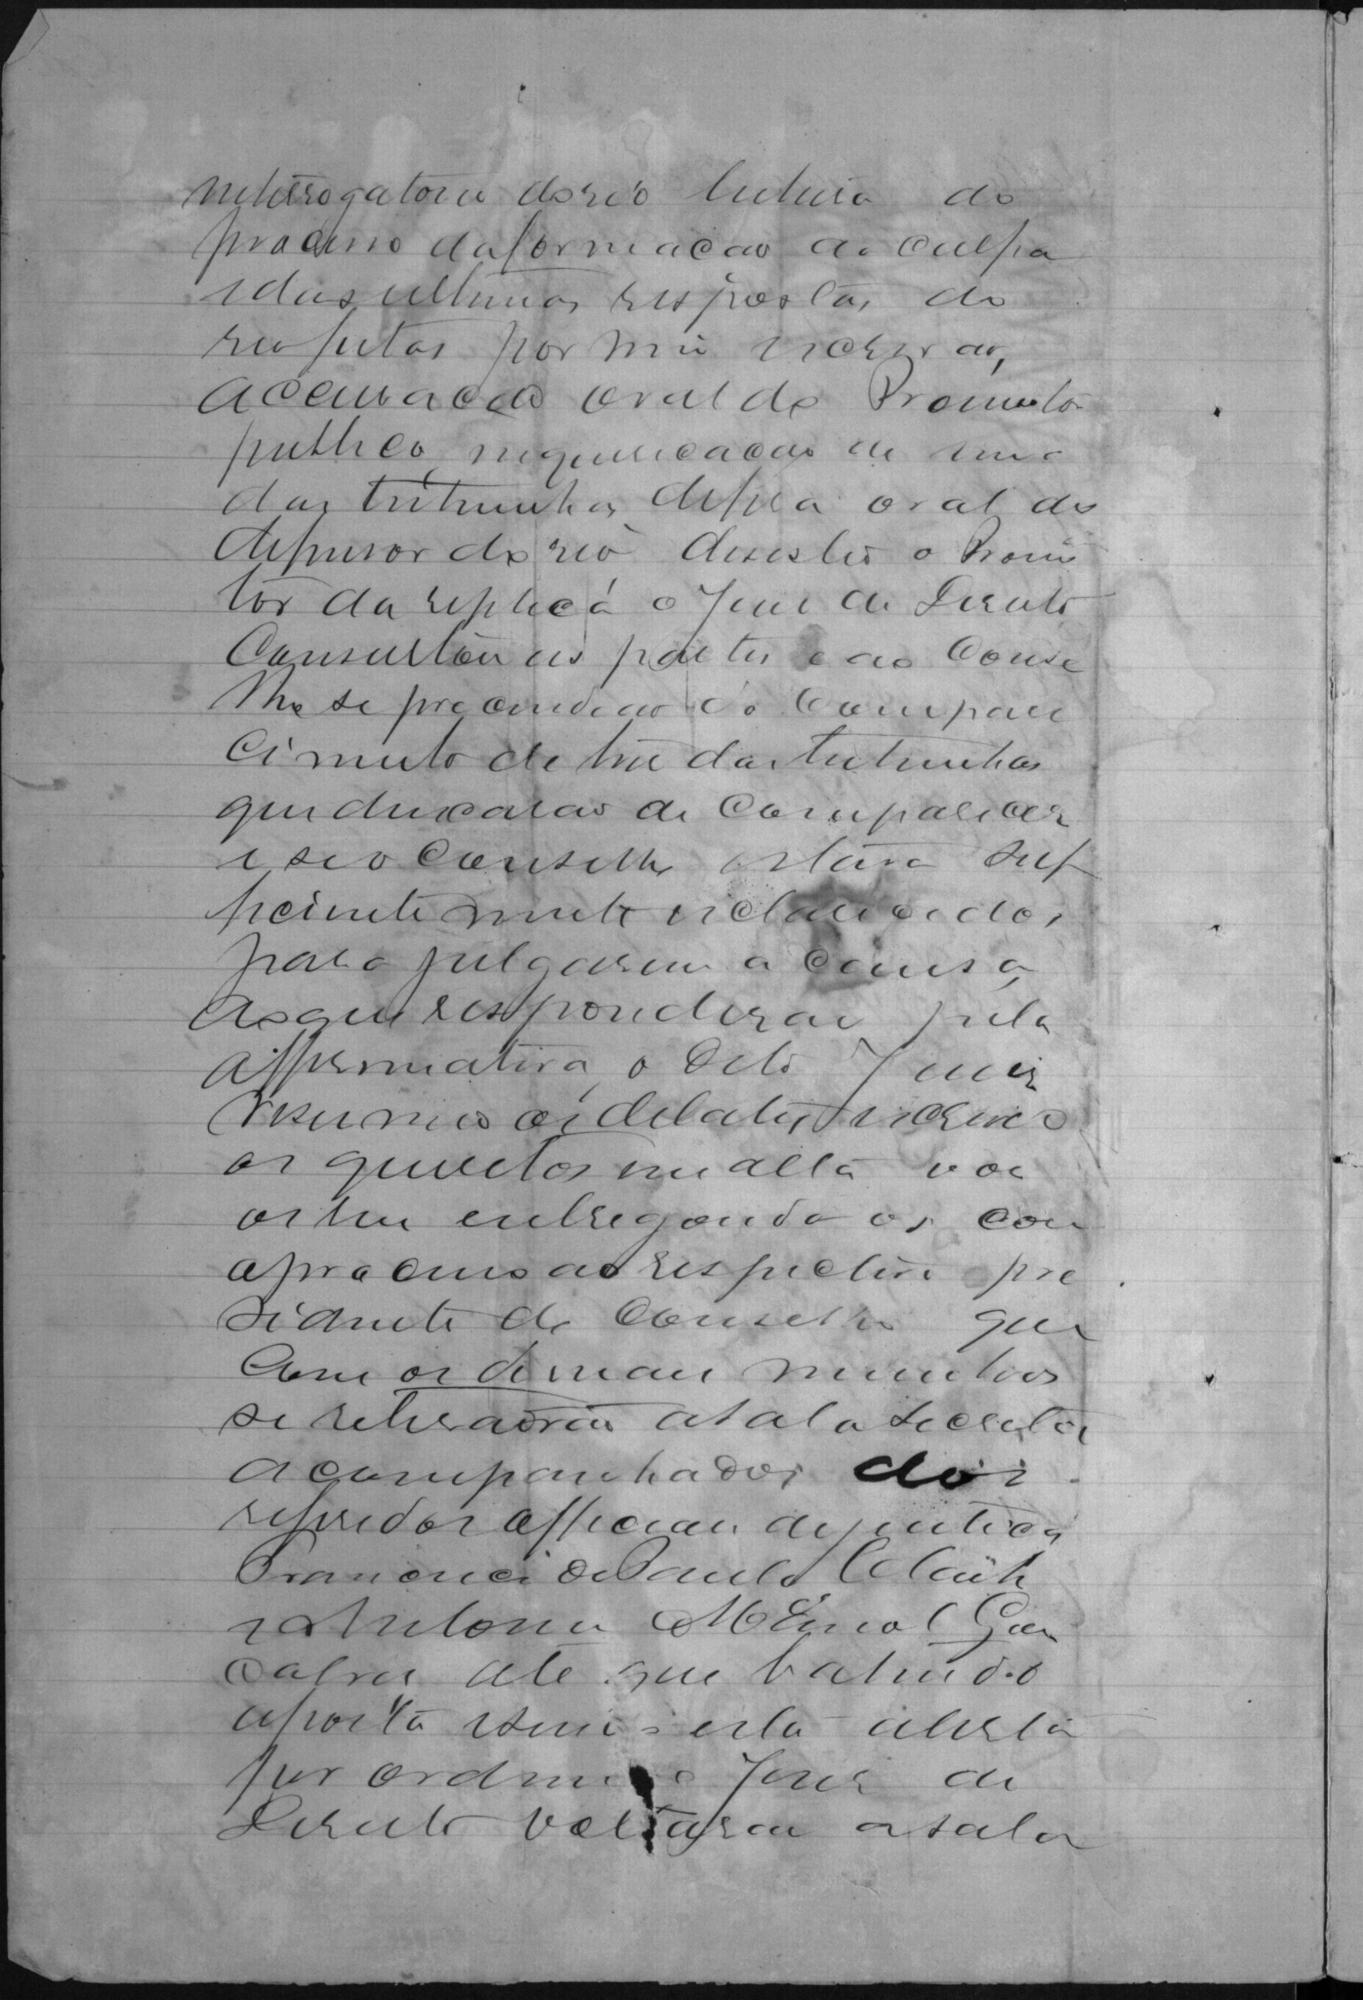 interrogatorio do reo leitura do
processo da formacao da culpa
e das ultimas respostas do
reo feitas por mim escrivão,
accusacão oral do Promotor
publico, inquiricacão de uma
das testemunhas defesa oral do
defensor do reo desestio o Promo
tor da replica o Juiz de Direito
Consultou as partes e ao Conse
lho se precindião do Compare
cimento de tres das testemunhas
que deixarão de Comparecer
e se o Conselho estava suf
ficientemente esclarecidos
para julgarem a Causa,
ao que responderão pela
affirmativa, o dito Juiz
resumio os debates, escreveo
os quesitos em alta voz
os leu entregando os com
o processo ao respectivo pre
sidente do Conselho que
com os demais membros
se retirarão a sala secreta
acompanhados dos
referidos officiaes de justica
Francisco de Paula
e Antonio Gon
calves até que batendo
a porta e sendo esta aberta
por ordem do Juiz de
Direito voltarão a sala